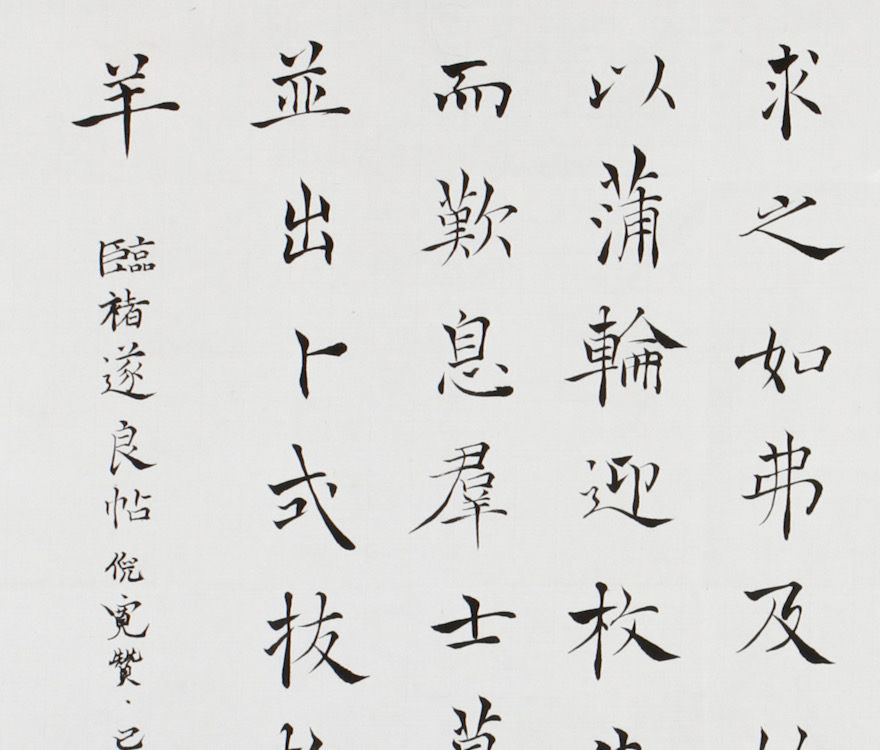 求之如弗及
以蒲輪迎枚
而歎息羣士
並出卜式拔
羊
臨褚遂良帖 倪寬贊、